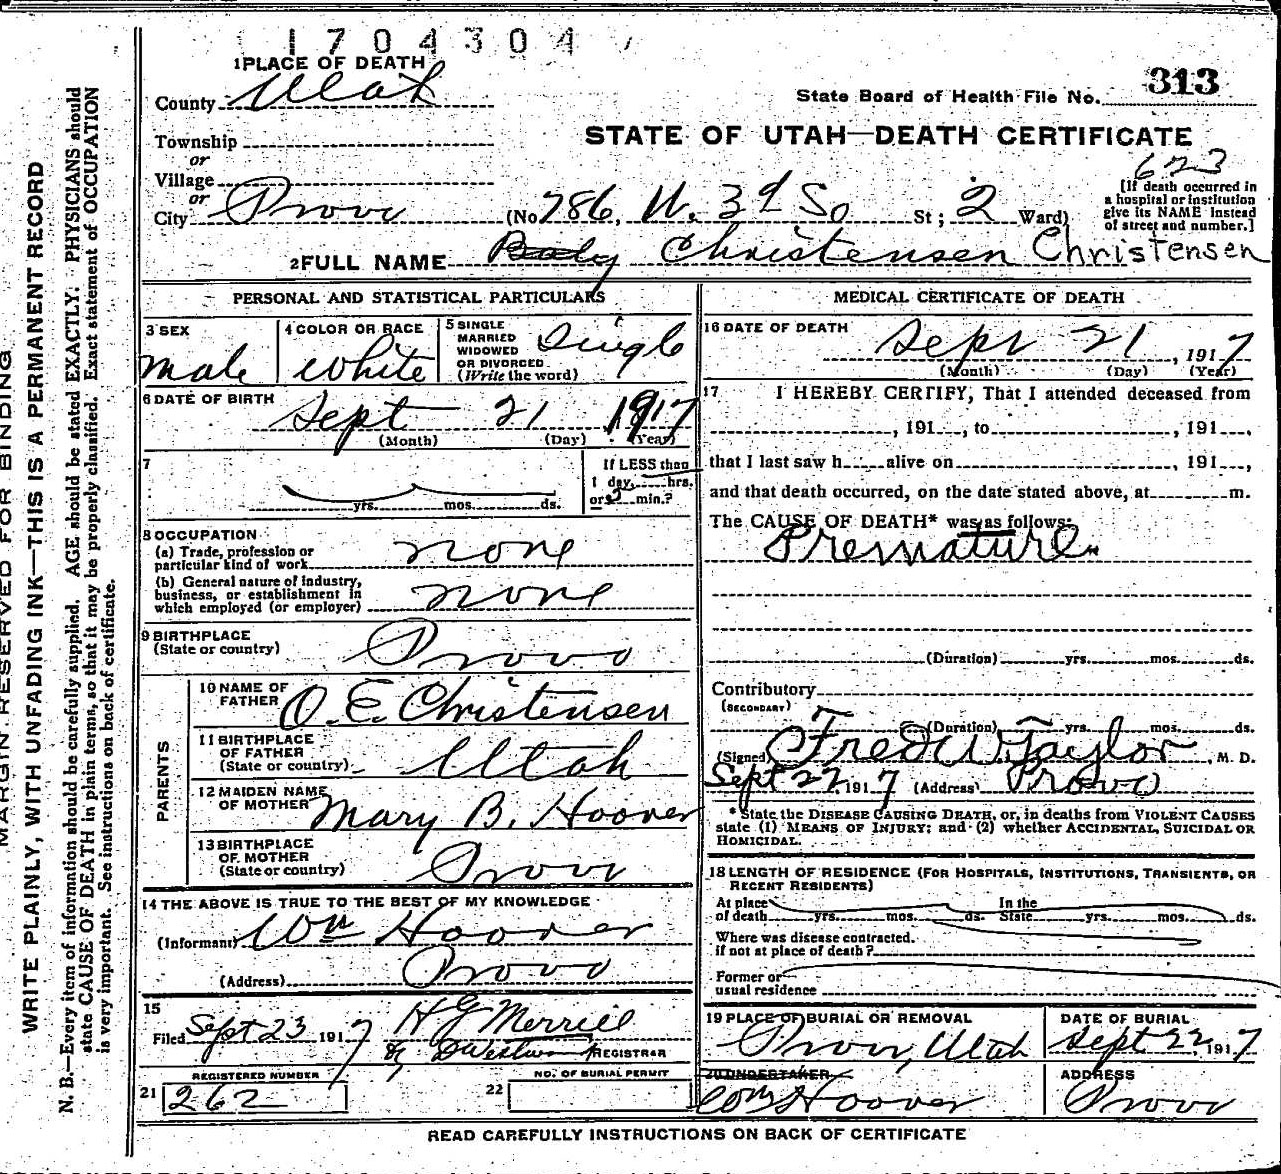 1704304
1 PLACE OF DEATH
County Utah
State Board of Health File No. 313
STATE OF UTAH—DEATH CERTIFICATE
Township
or
Village
or
City Provo (No 786, W. 3d So St; 2 Ward)
623
[If death occurred in
a hospital or institution
give its NAME instead
of street and number.]
2 FULL NAME Baby Christensen Christensen
PERSONAL AND STATISTICAL PARTICULARS
3 SEX
male
4 COLOR OR RACE
white
5 SINGLE
MARRIED
WIDOWED
OR DIVORCED
(Write the word)
Single
6 DATE OF BIRTH
Sept 21 1917
(Month) (Day) (Year)
7
yrs. mos. ds.
If LESS than
1 day, hrs.
or 5 min.?
8 OCCUPATION
(a) Trade, profession or
particular kind of work none
(b) General nature of industry,
business, or establishment in
which employed (or employer) none
9 BIRTHPLACE
(State or country) Provo
PARENTS
10 NAME OF
FATHER O. E. Christensen
11 BIRTHPLACE
OF FATHER
(State or country) Utah
12 MAIDEN NAME
OF MOTHER Mary B. Hoover
13 BIRTHPLACE
OF MOTHER
(State or country) Provo
14 THE ABOVE IS TRUE TO THE BEST OF MY KNOWLEDGE
(Informant) Wm Hoover
(Address) Provo
15
Filed Sept 23 1917 H G Merrill
REGISTRAR
REGISTERED NUMBER
21 262
NO. OF BURIAL PERMIT
22
MEDICAL CERTIFICATE OF DEATH
16 DATE OF DEATH
Sept 21, 1917
(Month) (Day) (Year)
17 I HEREBY CERTIFY, That I attended deceased from
, 191 , to , 191 ,
that I last saw h alive on , 191 ,
and that death occurred, on the date stated above, at m.
The CAUSE OF DEATH* was as follows:
Premature
(Duration) yrs. mos. ds.
Contributory
(SECONDARY)
(Duration) yrs. mos. ds.
(Signed) Fred W. Taylor, M. D.
Sept 22 1917 (Address) Provo
* State the DISEASE CAUSING DEATH, or, in deaths from VIOLENT CAUSES
state (1) MEANS OF INJURY; and (2) whether ACCIDENTAL, SUICIDAL OR
HOMICIDAL.
18 LENGTH OF RESIDENCE (FOR HOSPITALS, INSTITUTIONS, TRANSIENTS, OR
RECENT RESIDENTS)
At place
of death yrs. mos. ds.
In the
State yrs. mos. ds.
Where was disease contracted.
if not at place of death?
Former or
usual residence
19 PLACE OF BURIAL OR REMOVAL
Provo, Utah
DATE OF BURIAL
Sept 22, 1917
20 UNDERTAKER
Wm Hoover
ADDRESS
Provo
READ CAREFULLY INSTRUCTIONS ON BACK OF CERTIFICATE
MARGIN RESERVED FOR BINDING
WRITE PLAINLY, WITH UNFADING INK—THIS IS A PERMANENT RECORD
N. B.—Every item of information should be carefully supplied. AGE should be stated EXACTLY. PHYSICIANS should
state CAUSE OF DEATH in plain terms, so that it may be properly classified. Exact statement of OCCUPATION
is very important. See instructions on back of certificate.